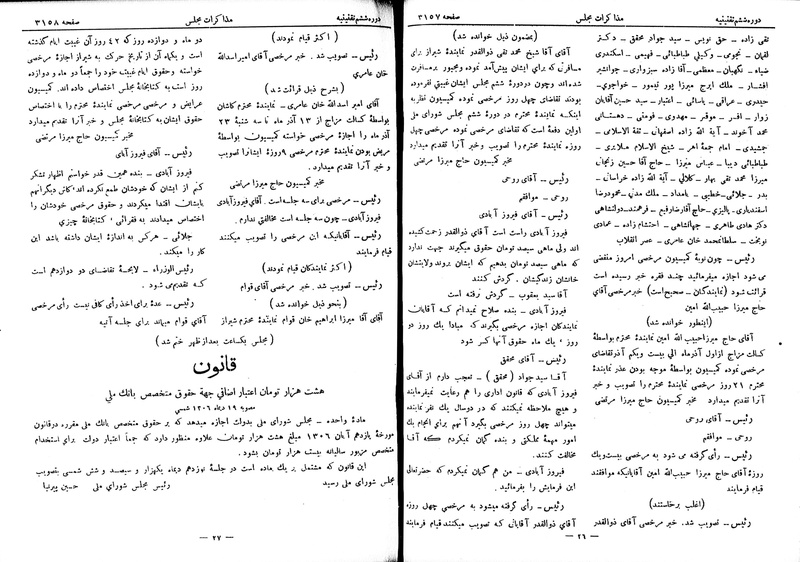 دوره ششم تقنینیه
مذاکرات مجلس
صفحه ۳۱۵۷
تقی زاده - حق نویس - سید جواد محقق - دکتر
لقمان - نجومی - وکیلی طباطبائی - فهیمی - اسکندری
ضیاء - نگهبان - معظمی - آقا زاده سبزواری - جوانشیر
افشار - ملک ایرج میرزا پور تیمور - خواجوی -
حیدری - عراقی - یاسائی - اعتبار - سید حسین آقایان
زوار - افسر - موقر - مهدوی - فومنی - دهستانی
محمد آخوند - آیة الله زاده اصفهانی - ثقة الاسلامی -
جمشیدی - امام جمعهٔ اهر - شیخ الاسلام ملایری -
طباطبائی دیبا - عباس میرزا - حاج آقا حسین زنجانی
میرزا محمد تقی بهار - کلالی - آیة الله زاده خراسانی -
بدر - جلائی - خطیبی - بامداد - ملک مدنی - محمود رضا
اسفندیاری - پالیزی - حاج آقا رضا رفیع - فرهمند - دولتشاهی
دکتر هادی طاهری - جهانشاهی - احتشام زاده - عمادی
نوبخت - سلطانمحمد خان عامری - عصر انقلاب
رئیس - چون نوبهٔ کمیسیون مرخصی امروز منقضی
می شود اجازه میفرمائید چند فقره خبر رسیده است
قرائت شود (نمایندگان - صحیح است) خبر مرخصی آقای
حاج میرزا حبیب الله امین
(اینطور خوانده شد)
آقای حاج میرزا حبیب الله امین نمایندهٔ محترم بواسطهٔ
کسالت مزاج از اول آذر ماه الی بیست ویکم آذر تقاضای
مرخصی نموده کمیسیون بواسطهٔ موجه بودن عذر نمایندهٔ
محترم ۲۱ روز مرخصی نمایندهٔ محترم را تصویب و خبر
آنرا تقدیم میدارد مخبر کمیسیون حاج میرزا مرتضی
رئیس - آقای روحی
روحی - موافقم
رئیس - رأی گرفته می شود به مرخصی بیست ویک
روزهٔ آقای حاج میرزا حبیب الله امین آقایانیکه موافقند
قیام فرمایند
(اغلب برخاستند)
رئیس - تصویب شد. خبر مرخصی آقای ذوالقدر
بمضمون ذیل خوانده شد)
آقای آقا شیخ محمد تقی ذوالقدر نمایندهٔ شیراز برای
مسافرتی که برای ایشان پیش آمد نموده ومجبور بمسافرت
شده اند وچون در دورهٔ ششم مجلس ایشان غیبتی نفرموده
بودند تقاضای چهل روز مرخصی نموده کمیسیون نظر به
اینکه نمایندهٔ محترم در دورهٔ ششم مجلس شورای ملی
اولین دفعه است که تقاضای مرخصی نموده مرخصی چهل
روزه نمایندهٔ محترم را تصویب وخبر آنرا تقدیم میدارد
مخبر کمیسیون حاج میرزا مرتضی
رئیس - آقای روحی
روحی - موافقم
رئیس - آقای فیروز آبادی
فیروز آبادی راست است آقای ذوالقدر زحمت کشیده
اند ولی ماهی سیصد تومان حقوق میگیرند جهت ندارد
که ماهی سیصد تومان بدهیم که ایشان بروند ولایتشان
خانشان زندگیشان. گردش کنند
آقا سید یعقوب - گردش نرفته است
فیروز آبادی - بنده صلاح نمیدانم که آقایان
نمایندگان اجازه مرخصی بگیرند که مبادا یك روز دو
روز، یك ماه حقوق آنها کسر شود
رئیس - آقای محقق
آقا سید جواد (محقق) - تعجب دارم از آقای
فیروز آبادی که قانون اداری را هم رعایت نمیفرمایند
و هیچ ملاحظه نمیکنند که در دو سال یك نفر نماینده
میتواند چهل روز مرخصی بگیرد آنهم برای انجام یك
امور مهمهٔ مملکتی و بنده گمان نمیکردم که آقا
مخالفت کنند.
فیروز آبادی - من هم گمان نمیکردم که حضرتعالی
این فرمایش را بفرمائید.
رئیس - رأی گرفته میشود به مرخصی چهل روزه
آقای ذوالقدر آقایانی که تصویب میکنند قیام فرمایند
— ۲۶ —
دوره ششم تقنینیه
مذاکرات مجلس
صفحه ۳۱۵۸
(اکثر قیام نمودند)
رئیس - تصویب شد. خبر مرخصی آقای امیر اسدالله
خان عامری
(بشرح ذیل قرائت شد)
آقای امیر اسدالله خان عامری - نمایندهٔ محترم کاشان
بواسطهٔ کسالت مزاج از ۱۳ آذر ماه تا سه شنبه ۲۳
آذر ماه را اجازهٔ مرخصی خواسته کمیسیون بواسطهٔ
مریض بودن نمایندهٔ محترم مرخصی ۹ روزهٔ ایشانرا تصویب
و خبر آنرا تقدیم میدارد.
مخبر کمیسیون حاج میرزا مرتضی
رئیس - مرخصی برای سه جلسه است. آقای فیروز آبادی
فیروز آبادی - چون سه جلسه است مخالفتی ندارم.
رئیس - آقایانیکه این مرخصی را تصویب میکنند
قیام فرمایند
(اکثر نمایندگان قیام نمودند)
رئیس - تصویب شد. خبر مرخصی آقای قوام
(بنحو ذیل خوانده شد)
آقای آقا میرزا ابراهیم خان قوام نمایندهٔ محترم شیراز
دو ماه و دوازده روز که ۴۲ روز آن غیبت ایام گذشته
است و یکماه آن از تاریخ حرکت به شیراز اجازهٔ مرخصی
خواسته وحقوق ایام غیبت خود را جمعاً دو ماه و دوازده
روز است به کتابخانهٔ مجلس اختصاص داده اند. کمیسیون
عرایض و مرخصی مرخصی نمایندهٔ محترم را با اختصاص
حقوق ایشان به کتابخانهٔ مجلس و خبر آنرا تقدیم میدارد
مخبر کمیسیون حاج میرزا مرتضی
رئیس - آقای فیروز آبادی
فیروز آبادی - بنده همین قدر خواستم اظهار تشکر
کنم از ایشان که خودشان طمع نکرده اند، کاش دیگرانهم
بایشان اقتدا میکردند و حقوق مرخصی خودشان را
اختصاص میدادند به فقرائی، کتابخانهٔ چیزی
جلائی - هرکس به اندازهٔ ایشان داشته باشد این
کار را میکند.
رئیس الوزراء - لایحهٔ تقاضای دو دوازدهم است
که تقدیم می شود.
رئیس - عدهٔ برای اخذ رأی کافی نیست رأی مرخصی
آقای قوام میماند برای جلسه آتیه
(مجلس یکساعت بعد از ظهر ختم شد)
قانون
هشت هزار تومان اعتبار اضافی جهة حقوق متخصص بانك ملی
مصوبه ۱۹ دیماه ۱۳۰۶ شمسی
مادهٔ واحده - مجلس شورای ملی بدولت اجازه میدهد که بر حقوق متخصص بانك ملی مقرره در قانون
مورخهٔ یازدهم آبان ۱۳۰۶ مبلغ هشت هزار تومان علاوه منظور دارد که جمعاً اعتبار دولت برای استخدام
متخصص مزبور سالیانه بیست هزار تومان بشود.
این قانون که مشتمل بر یك ماده است در جلسهٔ نوزدهم دیماه یکهزار و سیصد و شش شمسی بتصویب
مجلس شورای ملی رسید رئیس مجلس شورای ملی حسین پیرنیا
— ۲۷ —